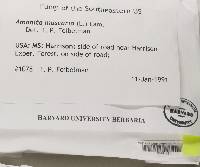 Fungi of the Southeastern US
Amanita muscaria (L.) Lam.
Det. T. P. Feibelman
USA: MS: Harrison: side of road near Harrison
Exper. Forest, on side of road;
#1078 T. P. Feibelman
11-Jan-1991
HARVARD UNIVERSITY HERBARIA